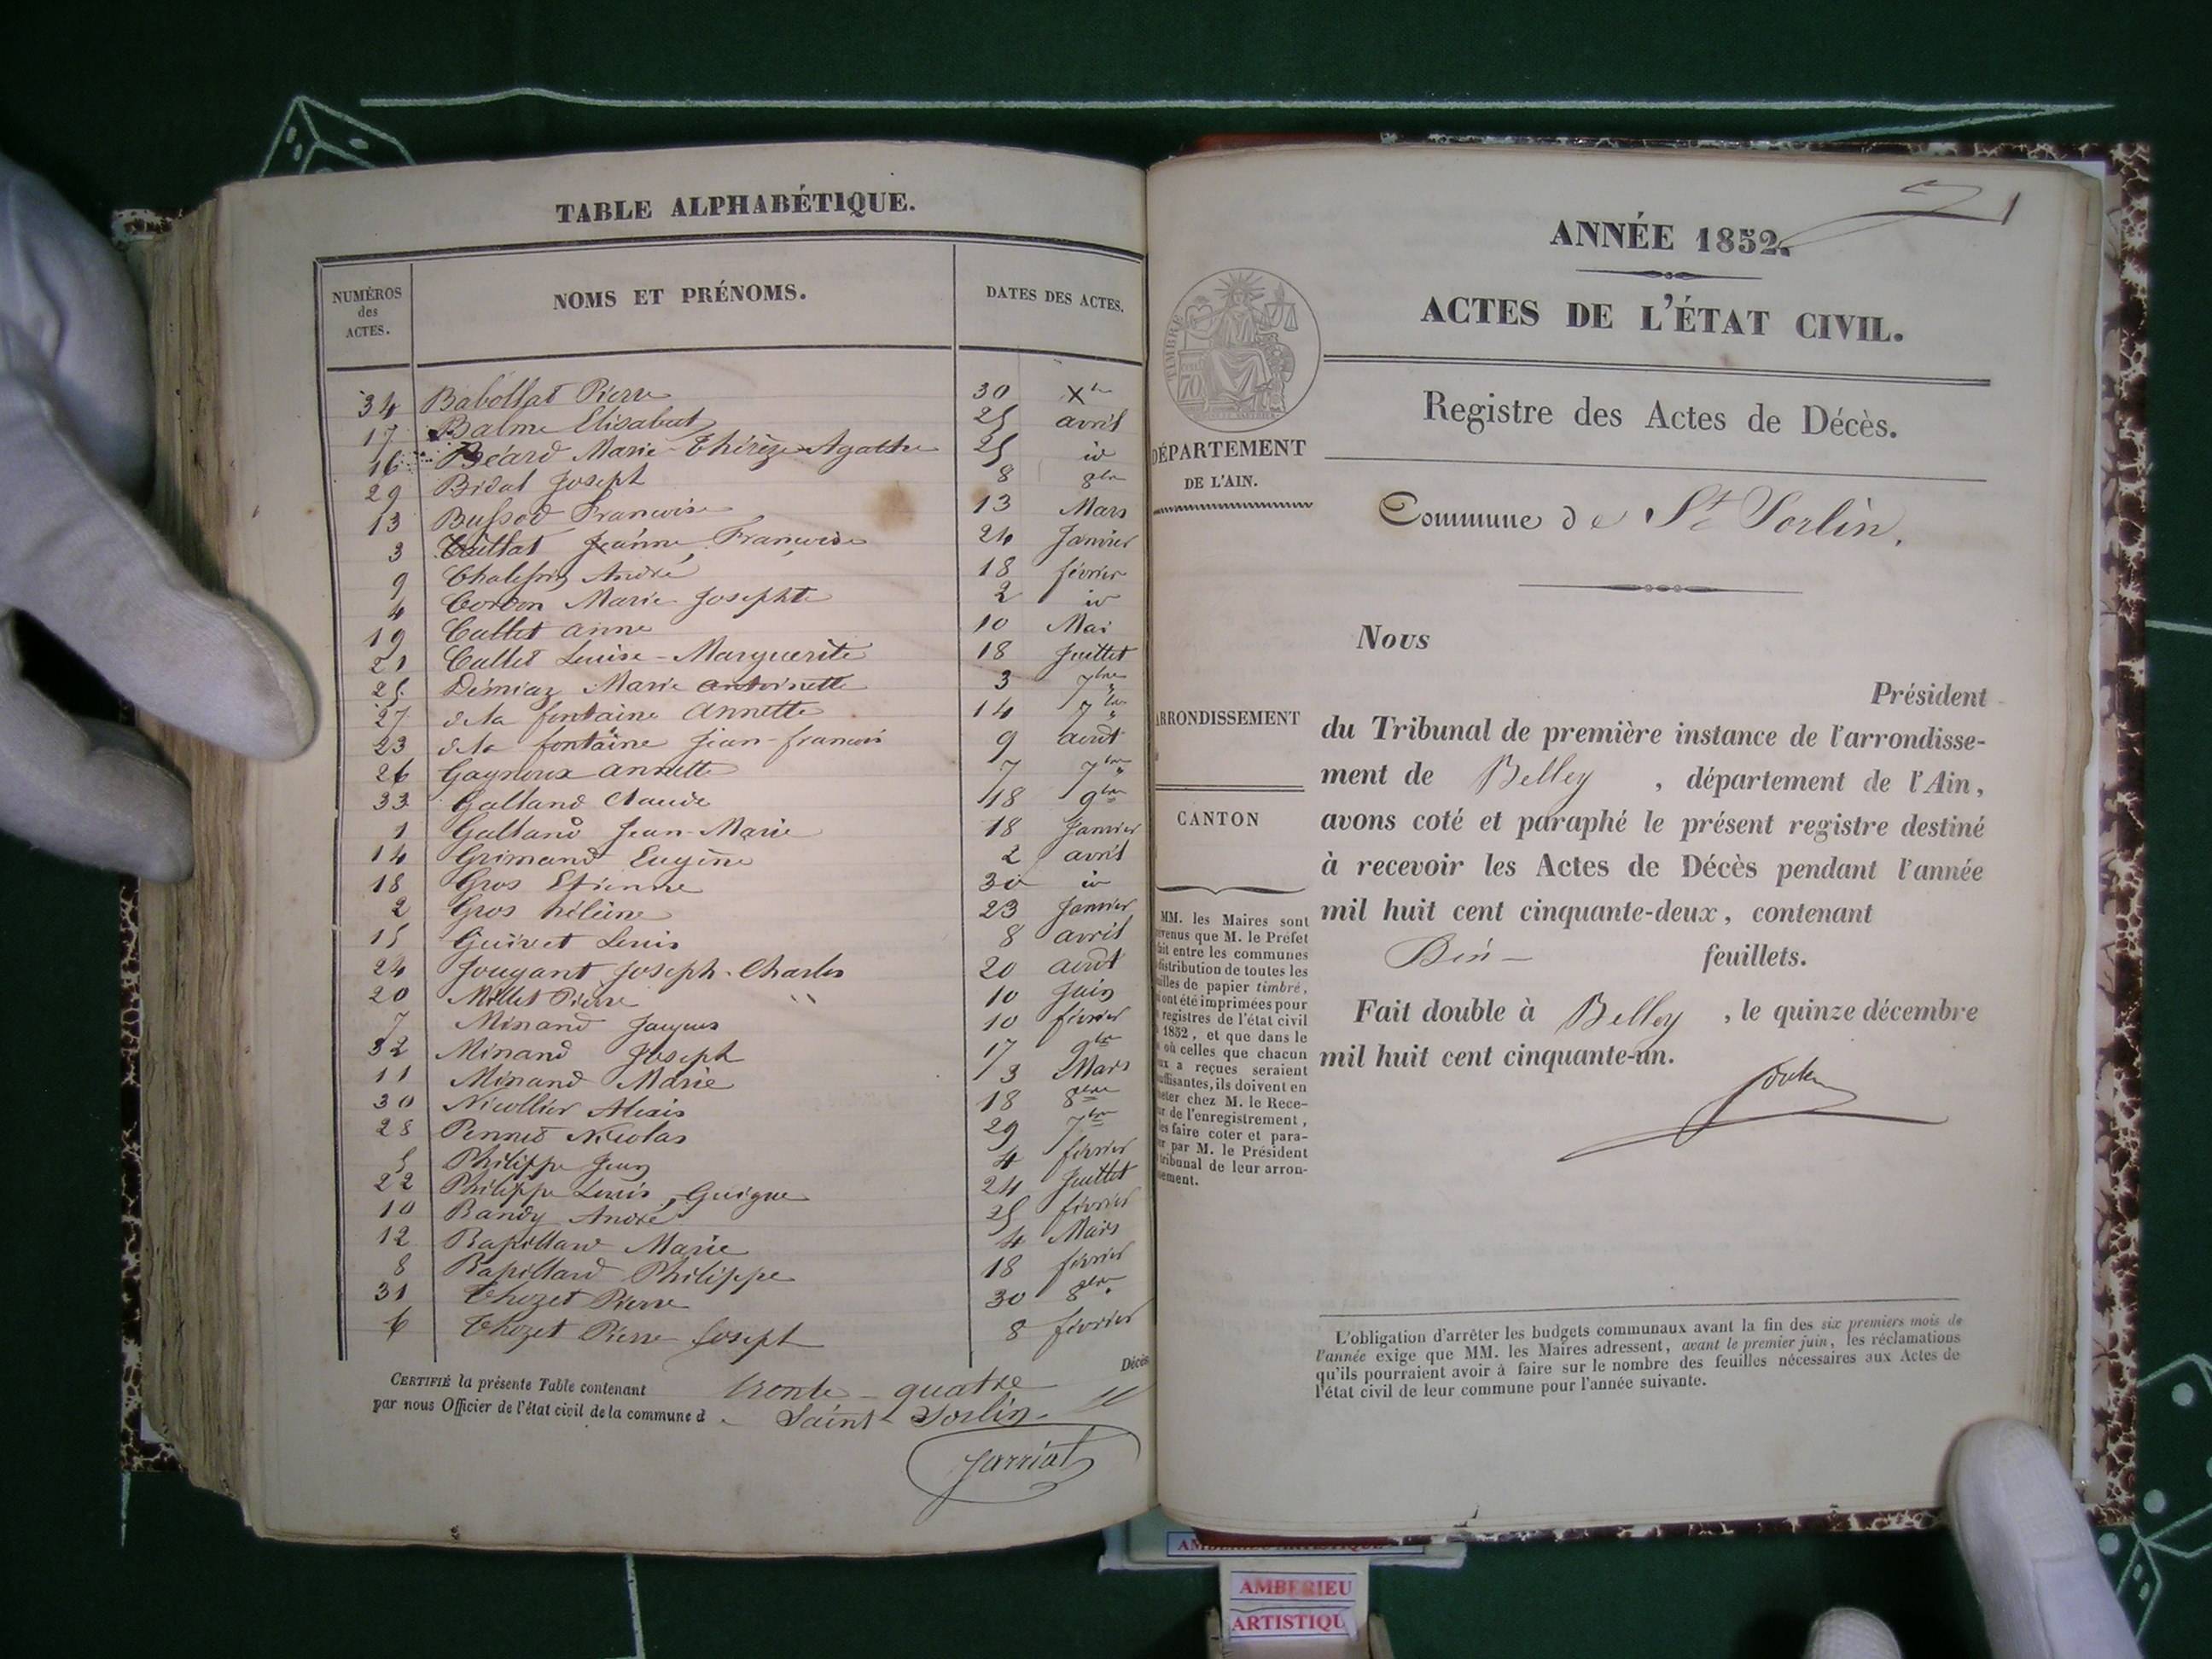 TABLE ALPHABÉTIQUE.
NUMÉROS des ACTES. NOMS ET PRÉNOMS. DATES DES ACTES.
34 Babollat Pierre 30 Xbre
17 Balme Elisabeth 25 avril
16 Béard Marie-Thérèze-Agathe 25 id
29 Bidal Joseph 8 8bre
13 Bussod Francoise 13 Mars
3 Caillat Jeanne Françoise 24 Janvier
9 André 18 février
4 Cordon Marie Josephte 2 id
19 Cullet anne 10 Mai
21 Cullet Louise-Marguerite 18 Juillet
25 Démiaz Marie antoinette 3 7bre
27 de la fontaine annette 14 7bre
23 de la fontaine Jean-francois 9 août
26 Gagnoux annette 7 7bre
33 Galland Claude 18 9bre
1 Galland Jean-Marie 18 Janvier
14 Grimand Eugène 2 avril
18 Gros Etienne 30 id
2 Gros hélène 23 Janvier
15 Guivet Louis 8 avril
24 Jougant Joseph-Charles 20 août
20 Millet Pierre 10 Juin
7 Minand Jacques 10 février
32 Minand Joseph 17 9bre
11 Minand Marie 3 Mars
30 Nicollier Alexis 18 8bre
28 Pennet Nicolas 29 7bre
5 Philippe Jean 4 février
22 Philippe Louis, Guigue 24 Juillet
10 Randy André 25 février
12 Rapillard Marie 4 Mars
8 Rapillard Philippe 18 février
31 Thozet Pierre 30 8bre
6 Thozet Pierre Joseph 8 février
Décès
CERTIFIÉ la présente Table contenant trente-quatre
par nous Officier de l'état civil de la commune d Saint-Sorlin
Jarriat
1
ANNÉE 1852.
ACTES DE L'ÉTAT CIVIL.
TIMBRE
70
Registre des Actes de Décès.
DÉPARTEMENT
DE L'AIN.
Commune de St Sorlin.
ARRONDISSEMENT
CANTON
MM. les Maires sont
que M. le Préfet
fait entre les communes
distribution de toutes les
de papier timbré,
ont été imprimées pour
registres de l'état civil
1852, et que dans le
où celles que chacun
a reçues seraient
ils doivent en
chez M. le Rece-
de l'enregistrement,
les faire coter et para-
par M. le Président
tribunal de leur arron-
Nous
Président
du Tribunal de première instance de l'arrondisse-
ment de Belley, département de l'Ain,
avons coté et paraphé le présent registre destiné
à recevoir les Actes de Décès pendant l'année
mil huit cent cinquante-deux, contenant
feuillets.
Fait double à Belley, le quinze décembre
mil huit cent cinquante-un.
L'obligation d'arrêter les budgets communaux avant la fin des six premiers mois de
l'année exige que MM. les Maires adressent, avant le premier juin, les réclamations
qu'ils pourraient avoir à faire sur le nombre des feuilles nécessaires aux Actes de
l'état civil de leur commune pour l'année suivante.
AMBERIEU ARTISTIQUE
AMBERIEU
ARTISTIQU